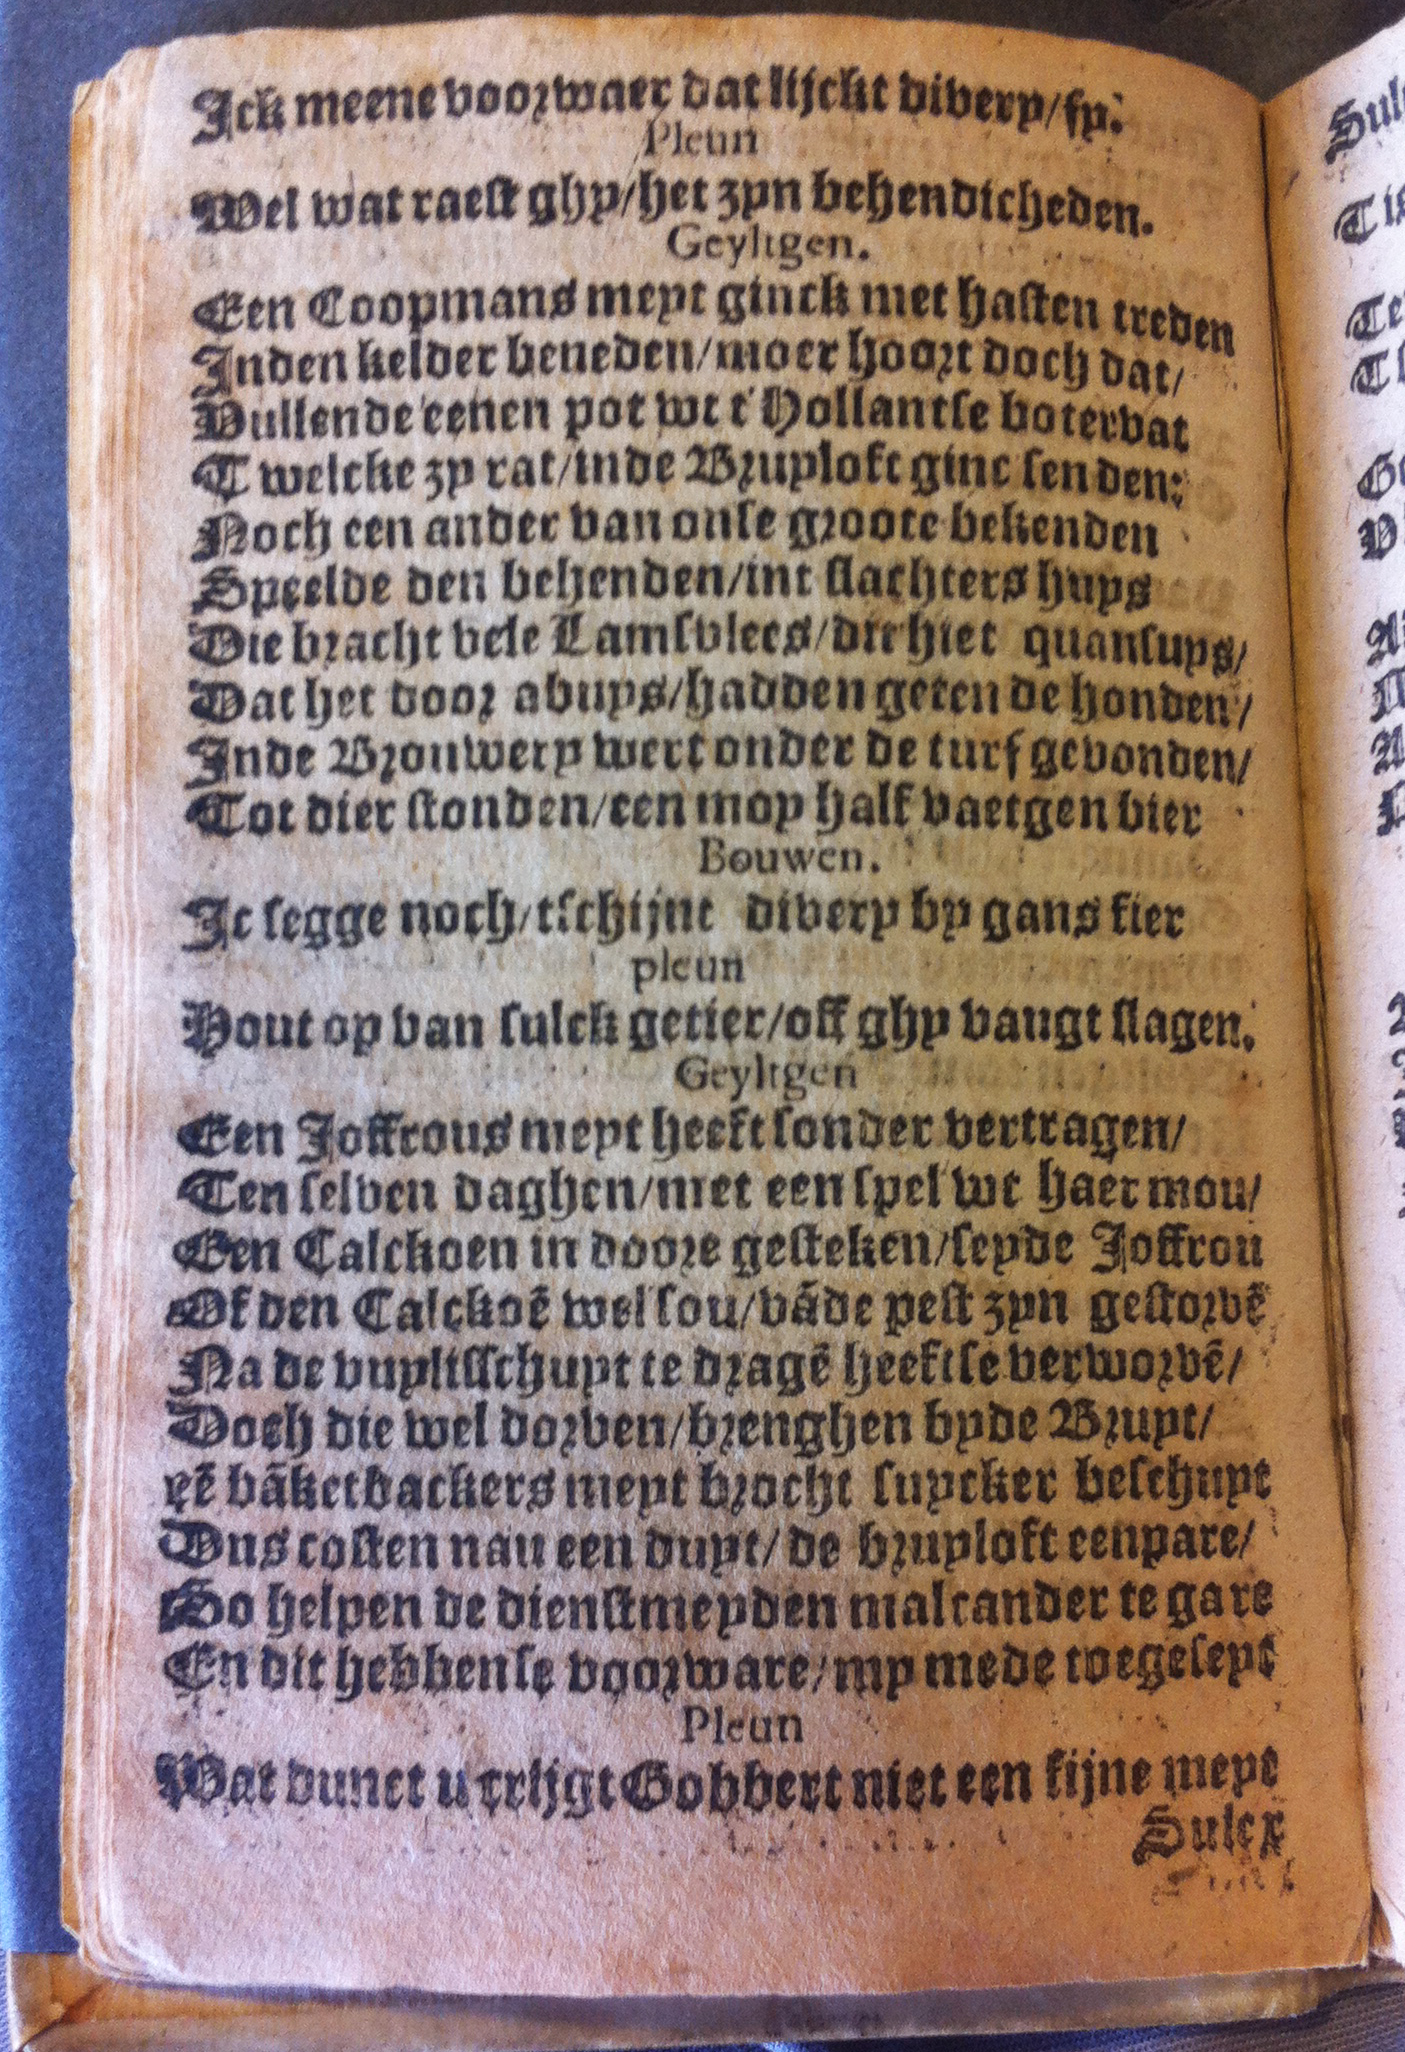 Ick meene voorwaer dat lijckt divery/fy.
Pleun
Wel wat raest ghy/het zyn behendicheden.
Geyltgen.
Een Coopmans meyt ginck met hasten treden
Inden kelder beneden/moer hoort doch dat/
Vullende eenen pot wt t'Hollantse botervat
T welcke zy rat/inde Bruyloft ginc senden:
Noch een ander van onse groote bekenden
Speelde den behenden/int slachters huys
Die bracht vele Lamsvlees/dit hiet quansuys/
Dat het door abuys/hadden geten de honden/
Inde Brouwery wert onder de turf gevonden/
Tot dier stonden/een moy half vaetgen bier
Bouwen.
Ic segge noch/tschijnt divery by gans fier
pleun
Hout op van sulck getier/off ghy vangt slagen.
Geyltgen
Een Joffrous meyt heeft sonder vertragen/
Ten selven daghen/met een spel wt haer mou/
Een Calckoen in doore gesteken/seyde Joffrou
Of den Calckoē wel sou/vāde pest zyn gestorvē
Na de vuylisschuyt te dragē heeftse verworvē/
Doch die wel dorven/brenghen byde Bruyt/
eē bāketbackers meyt brocht suycker beschuyt
Dus costen nau een duyt/de bruyloft eenpare/
So helpen de dienstmeyden malcander te gare
En dit hebbense voorware/my mede toegeseyt
Pleun
Wat dunct u crijgt Gobbert niet een fijne meyt
Sulcx
Sul
Tis
Te
T
Ge